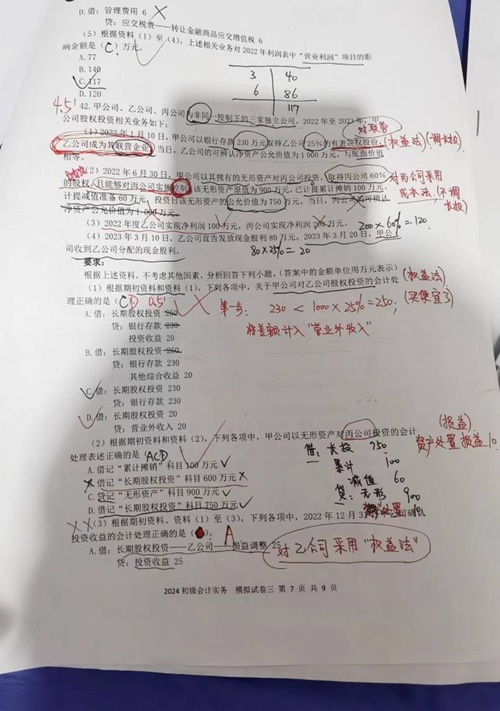 D.借：管理费用 6
贷：应交税费——转让金融商品应交增值税 6
(5) 根据资料（1）至（4），上述相关业务对 2022 年利润表中“营业利润”项目的影
响金额是（C）万元。
A.77
B.140
C.117
D.120
3 40
6 86
117
4.5'
42. 甲公司、乙公司、丙公司为非同一控制下的三家独立公司。2022 年至 2023 年，甲
公司股权投资相关业务如下：
（1）2022 年 1 月 10 日，甲公司以银行存款 230 万元取得乙公司 25%的有表决权股份，
乙公司成为其联营企业。当日，乙公司的可辨认净资产公允价值为 1 000 万元，与账面价值
相等。
（权益法）
（2）2022 年 6 月 30 日，甲公司以其拥有的无形资产对丙公司投资，取得丙公司 60%
的股权，且能够对丙公司实施控制。该无形资产原值为 900 万元，已计提累计摊销 100 万元，
计提减值准备 60 万元，投资日该无形资产的公允价值为 750 万元，当日，丙公司的可辨认
净资产公允价值为 1 000 万元。
对丙公司采用
成本法（不调
长投）
（3）2022 年度乙公司实现净利润 100 万元，丙公司实现净利润 200 万元。
200×60%=120
（4）2023 年 3 月 10 日，乙公司宣告发放现金股利 80 万元。2023 年 3 月 20 日，甲公
司收到乙公司分配的现金股利。
80×25%=20
要求：
根据上述资料，不考虑其他因素，分析回答下列小题。（答案中的金额单位用万元表示）
（1）根据期初资料和资料（1），下列各项中，关于甲公司对乙公司股权投资的会计处
理正确的是（CD
0.5'
（权益法）
（买便宜了）
A.借：长期股权投资 250
贷：银行存款 230
投资收益 20
第一步： 230 < 1000×25%=250，
将差额计入“营业外收入”
B.借：长期股权投资 250
贷：银行存款 230
其他综合收益 20
C.借：长期股权投资 230
贷：银行存款 230
D.借：长期股权投资 20
贷：营业外收入 20
（2）根据期初资料和资料（2），下列各项中，甲公司以无形资产对丙公司投资的会计
处理表述正确的是（ACD
（损益）
资产处置损益10
A.借记“累计摊销”科目 100 万元
B.借记“长期股权投资”科目 600 万元
C.贷记“无形资产”科目 900 万元
D.借记“长期股权投资”科目 750 万元
借：长投 750
累计 100
减值 60
贷：无形 900
（3）根据期初资料、资料（1）至（3），下列各项中，2022 年 12 月 3
投资收益的会计处理正确的是（ A
A.借：长期股权投资——乙公司——损益调整 25
贷：投资收益 25
对乙公司采用“权益法”
2024 初级会计实务 模拟试卷三 第 7 页 共 9 页